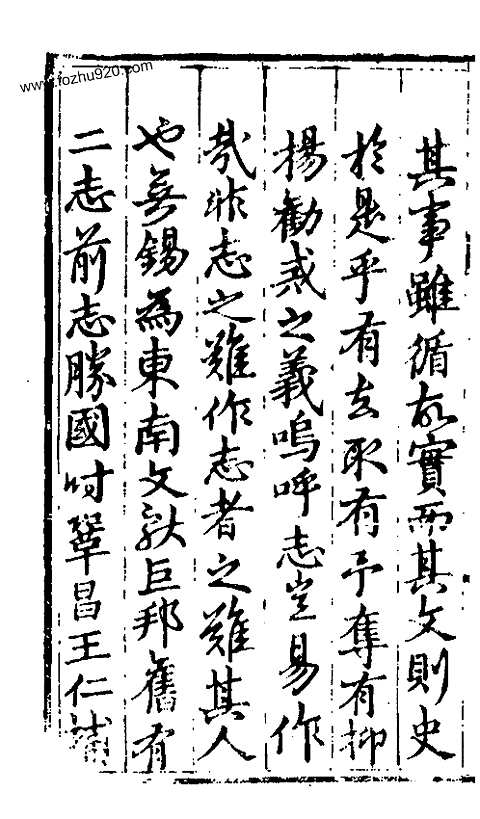 其事雖循故實而其文則史
於是乎有去取有予奪有抑
揚勸戒之義嗚呼志豈易作
哉非志之難作志者之難其人
也無錫為東南文獻巨邦舊有
二志前志勝國時鞏昌王仁輔
www.fozhu920.com